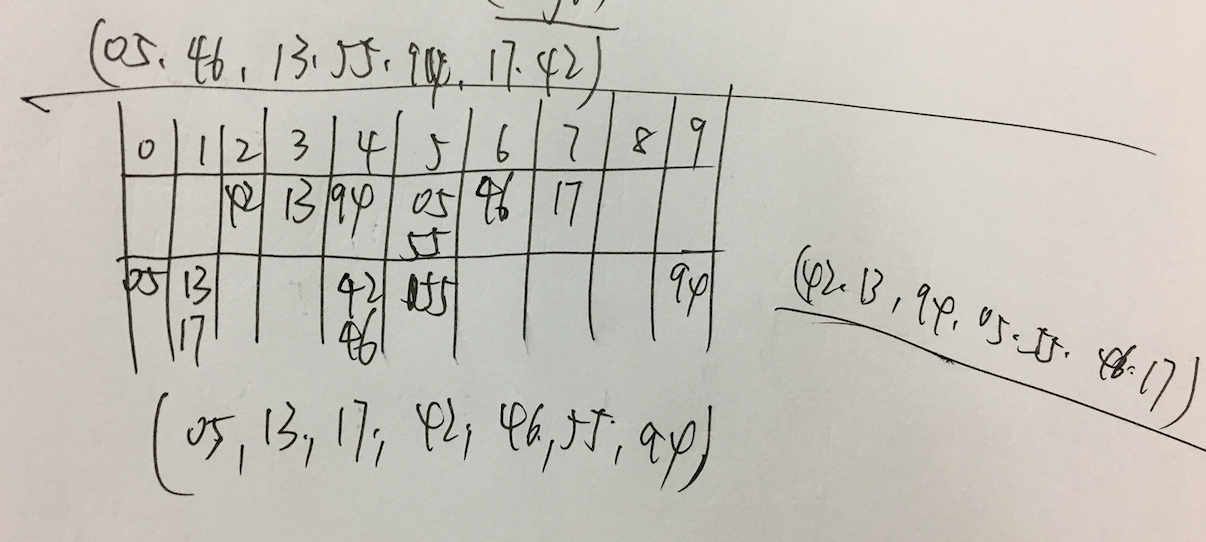 (05. 46, 13. 55. 94, 17. 42)
0 1 2 3 4 5 6 7 8 9
42 13 94 05 46 17
55
05 13 42 55 94
17 46
(42. 13, 94, 05. 55. 46. 17)
(05, 13, 17, 42, 46, 55, 94)